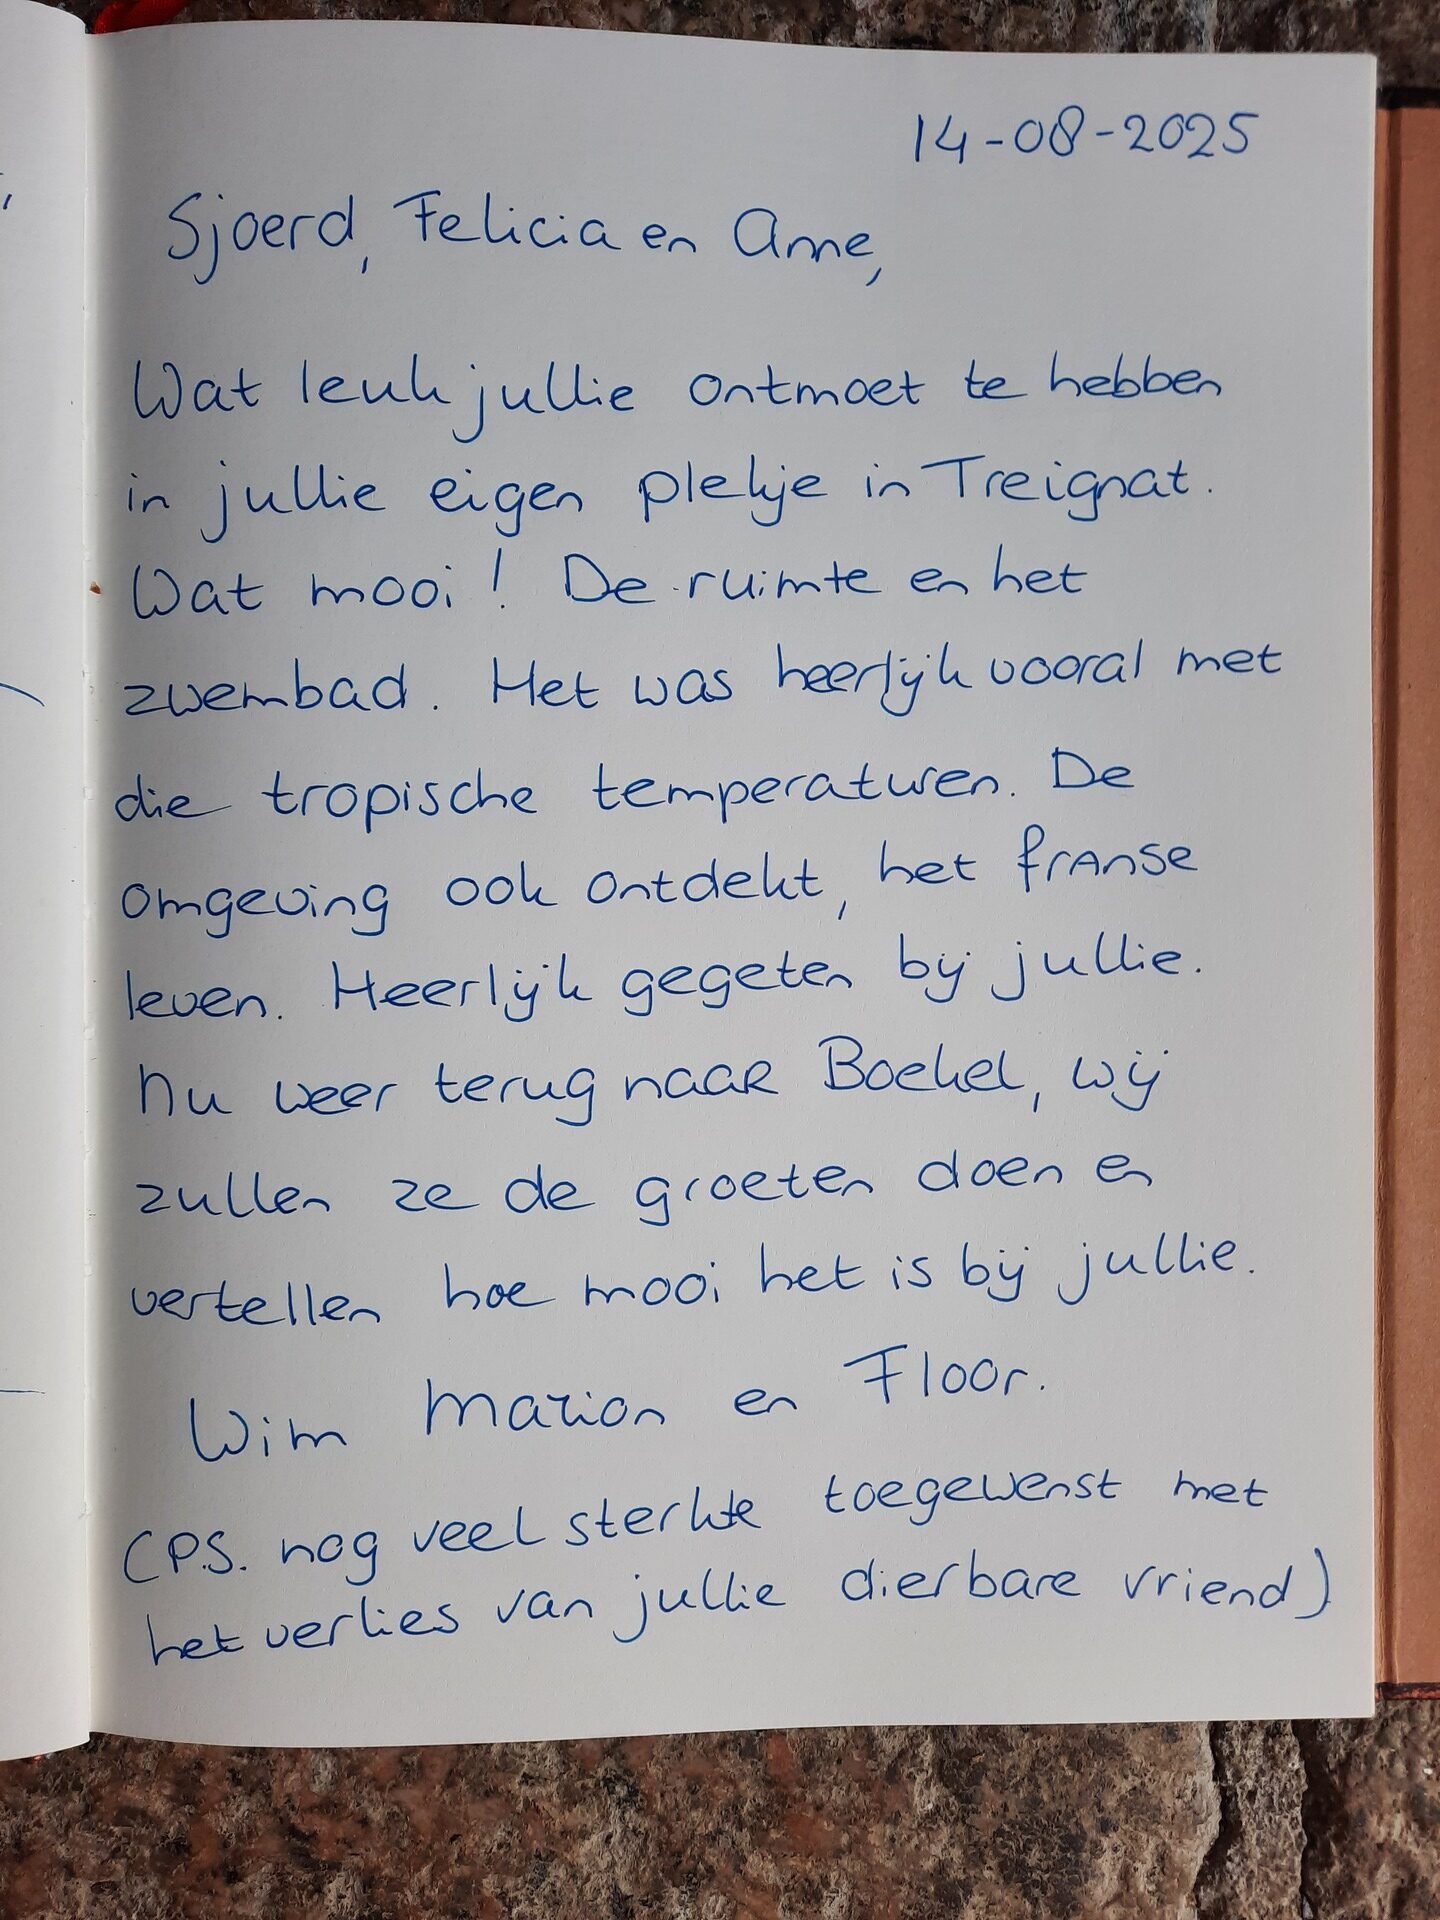 14-08-2025
Sjoerd, Felicia en Anne,
Wat leuk jullie ontmoet te hebben
in jullie eigen plekje in Treignat.
Wat mooi! De ruimte en het
zwembad. Het was heerlijk vooral met
die tropische temperaturen. De
omgeving ook ontdekt, het franse
leven. Heerlijk gegeten bij jullie.
Nu weer terug naar Boekel, wij
zullen ze de groeten doen en
vertellen hoe mooi het is bij jullie.
Wim Marion en Floor.
(P.S. nog veel sterkte toegewenst met
het verlies van jullie dierbare vriend)